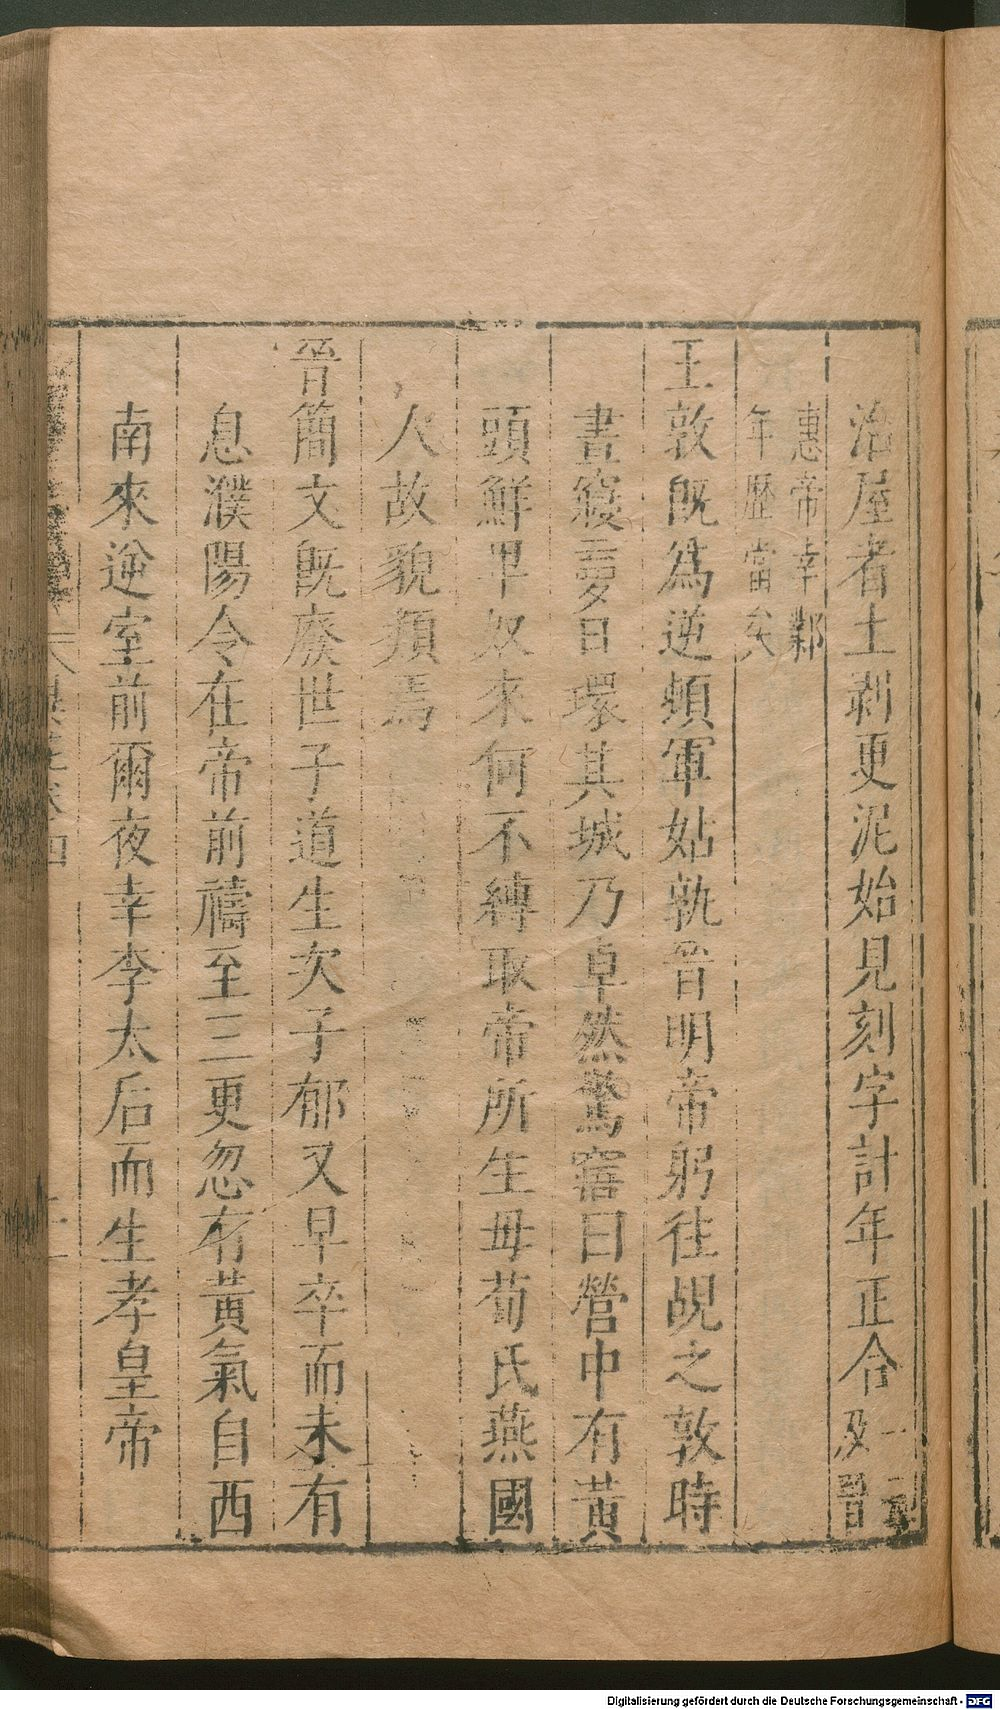 治屋者土剥更泥始見刻字計年正合
及晉
惠帝幸鄴
年歷當矣
王敦既爲逆頓軍姑孰晉明帝躬往覘之敦時
晝寢夢日環其城乃卓然驚寤曰營中有黃
頭鮮卑奴來何不縛取帝所生母荀氏燕國
人故貌類焉
晉簡文既廢世子道生次子郁又早卒而未有
息濮陽令在帝前禱至三更忽有黃氣自西
南來逆室前爾夜幸李太后而生孝皇帝
Digitalisierung gefördert durch die Deutsche Forschungsgemeinschaft - DFG